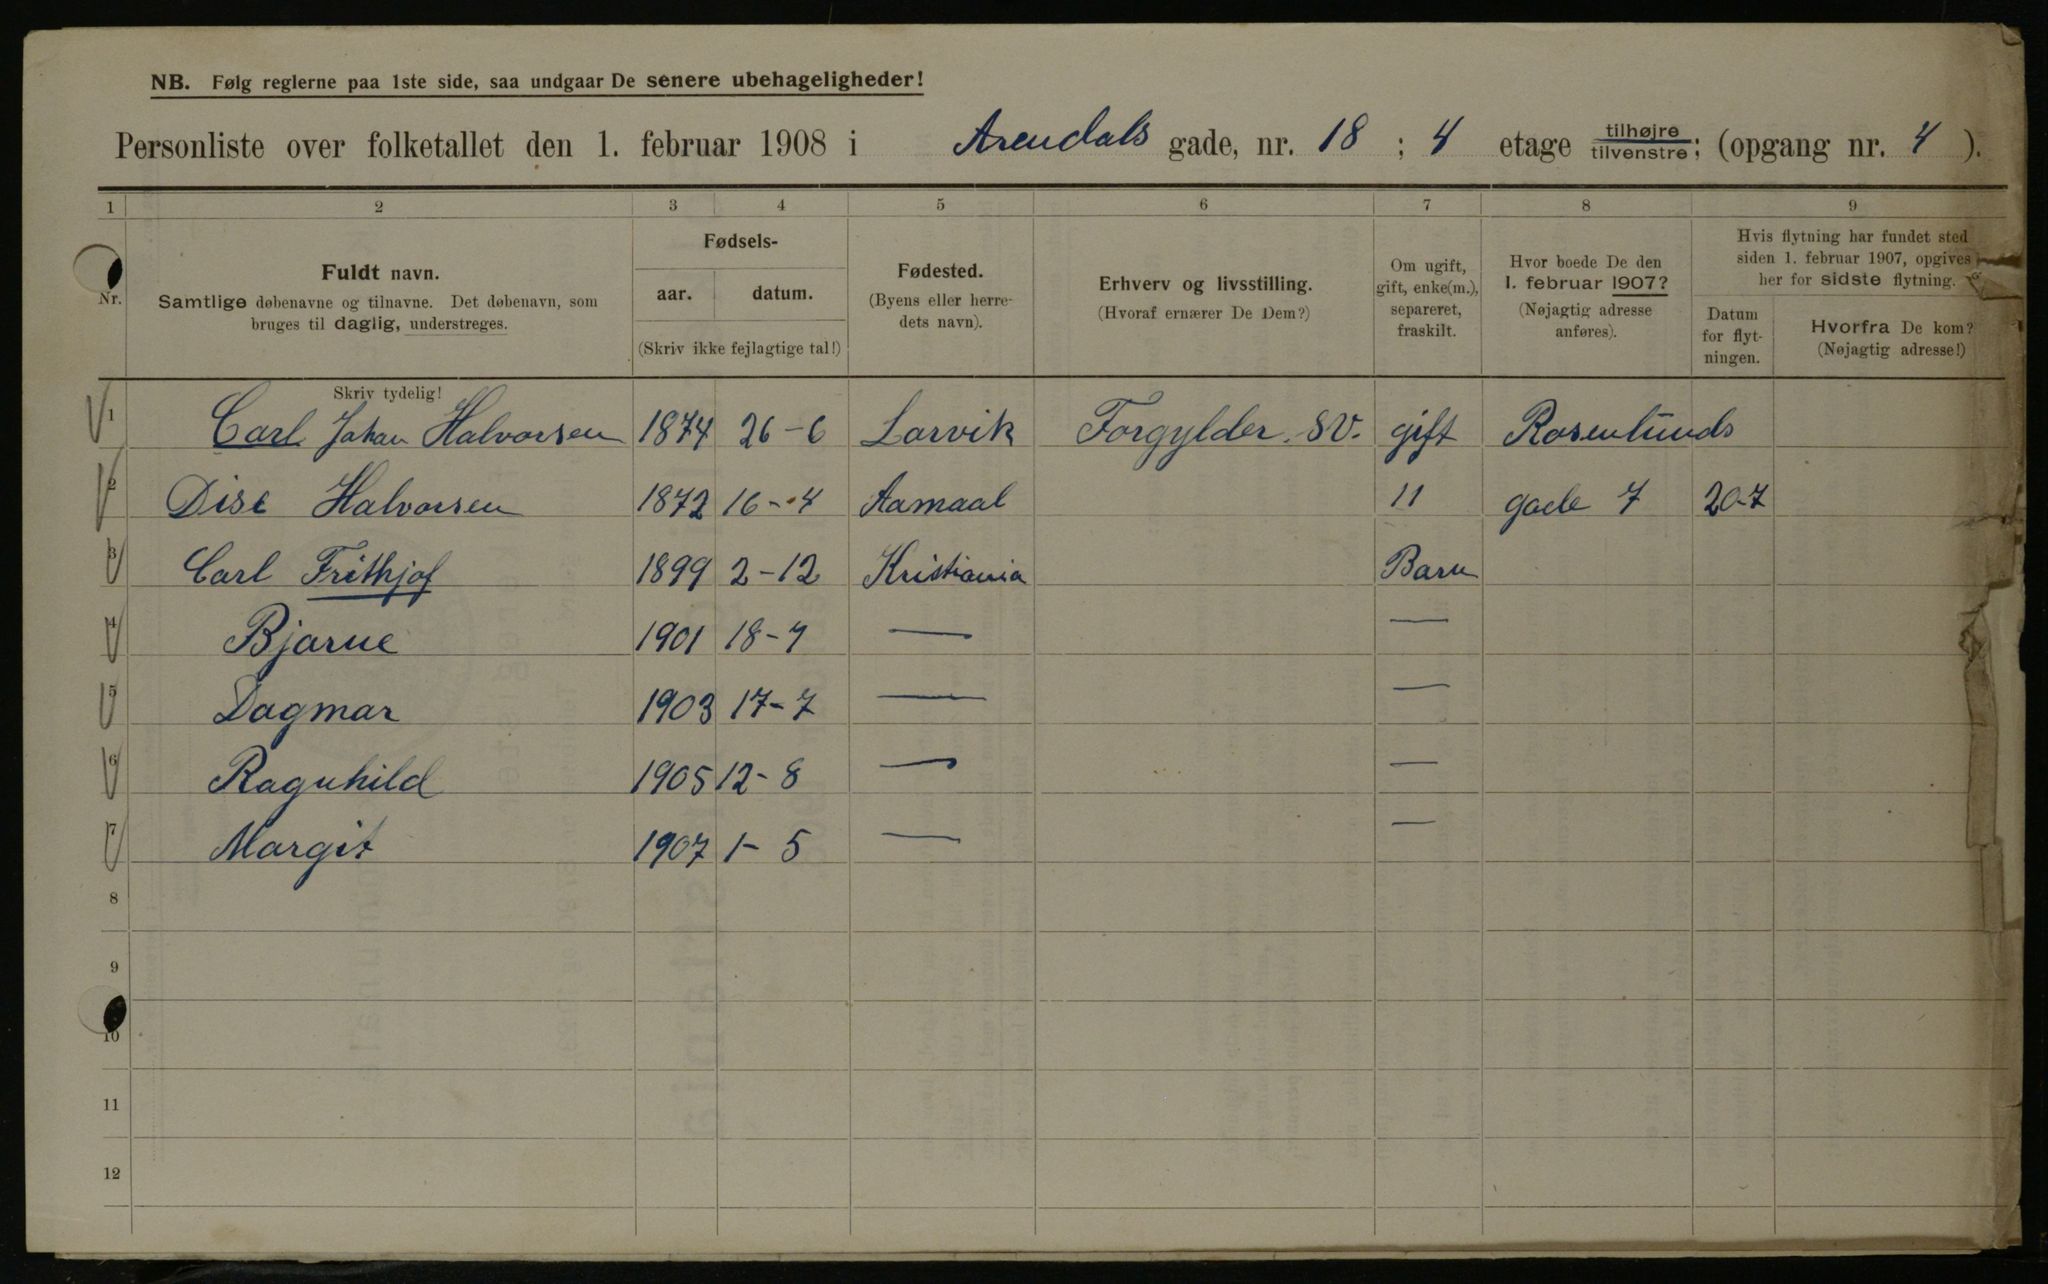 NB. Følg reglerne paa 1ste side, saa undgaar De senere ubehageligheder!
Personliste over folketallet den 1. februar 1908 i Arendals gade, nr. 18 ; 4 etage tilhøjre / tilvenstre ; (opgang nr. 4 ).
1 2 3 4 5 6 7 8 9
Nr.
Fuldt navn.
Samtlige døbenavne og tilnavne. Det døbenavn, som
bruges til daglig, understreges.
Fødsels-
aar. datum.
(Skriv ikke fejlagtige tal!)
Fødested.
(Byens eller herre-
dets navn).
Erhverv og livsstilling.
(Hvoraf ernærer De Dem?)
Om ugift,
gift, enke(m.),
separeret,
fraskilt.
Hvor boede De den
1. februar 1907?
(Nøjagtig adresse
anføres).
Hvis flytning har fundet sted
siden 1. februar 1907, opgives
her for sidste flytning.
Datum
for flyt-
ningen.
Hvorfra De kom?
(Nøjagtig adresse!)
Skriv tydelig!
1 Carl Johan Halvorsen 1874 26-6 Larvik Forgylder. SV. gift Rosenlunds
2 Disc Halvorsen 1872 16-4 Aamaal 11 gade 7 20-7
3 Carl Frithjof 1899 2-12 Kristiania Barn
4 Bjarne 1901 18-7 — —
5 Dagmar 1903 17-7 — —
6 Ragnhild 1905 12-8 — —
7 Margit 1907 1-5 — —
8
9
10
11
12